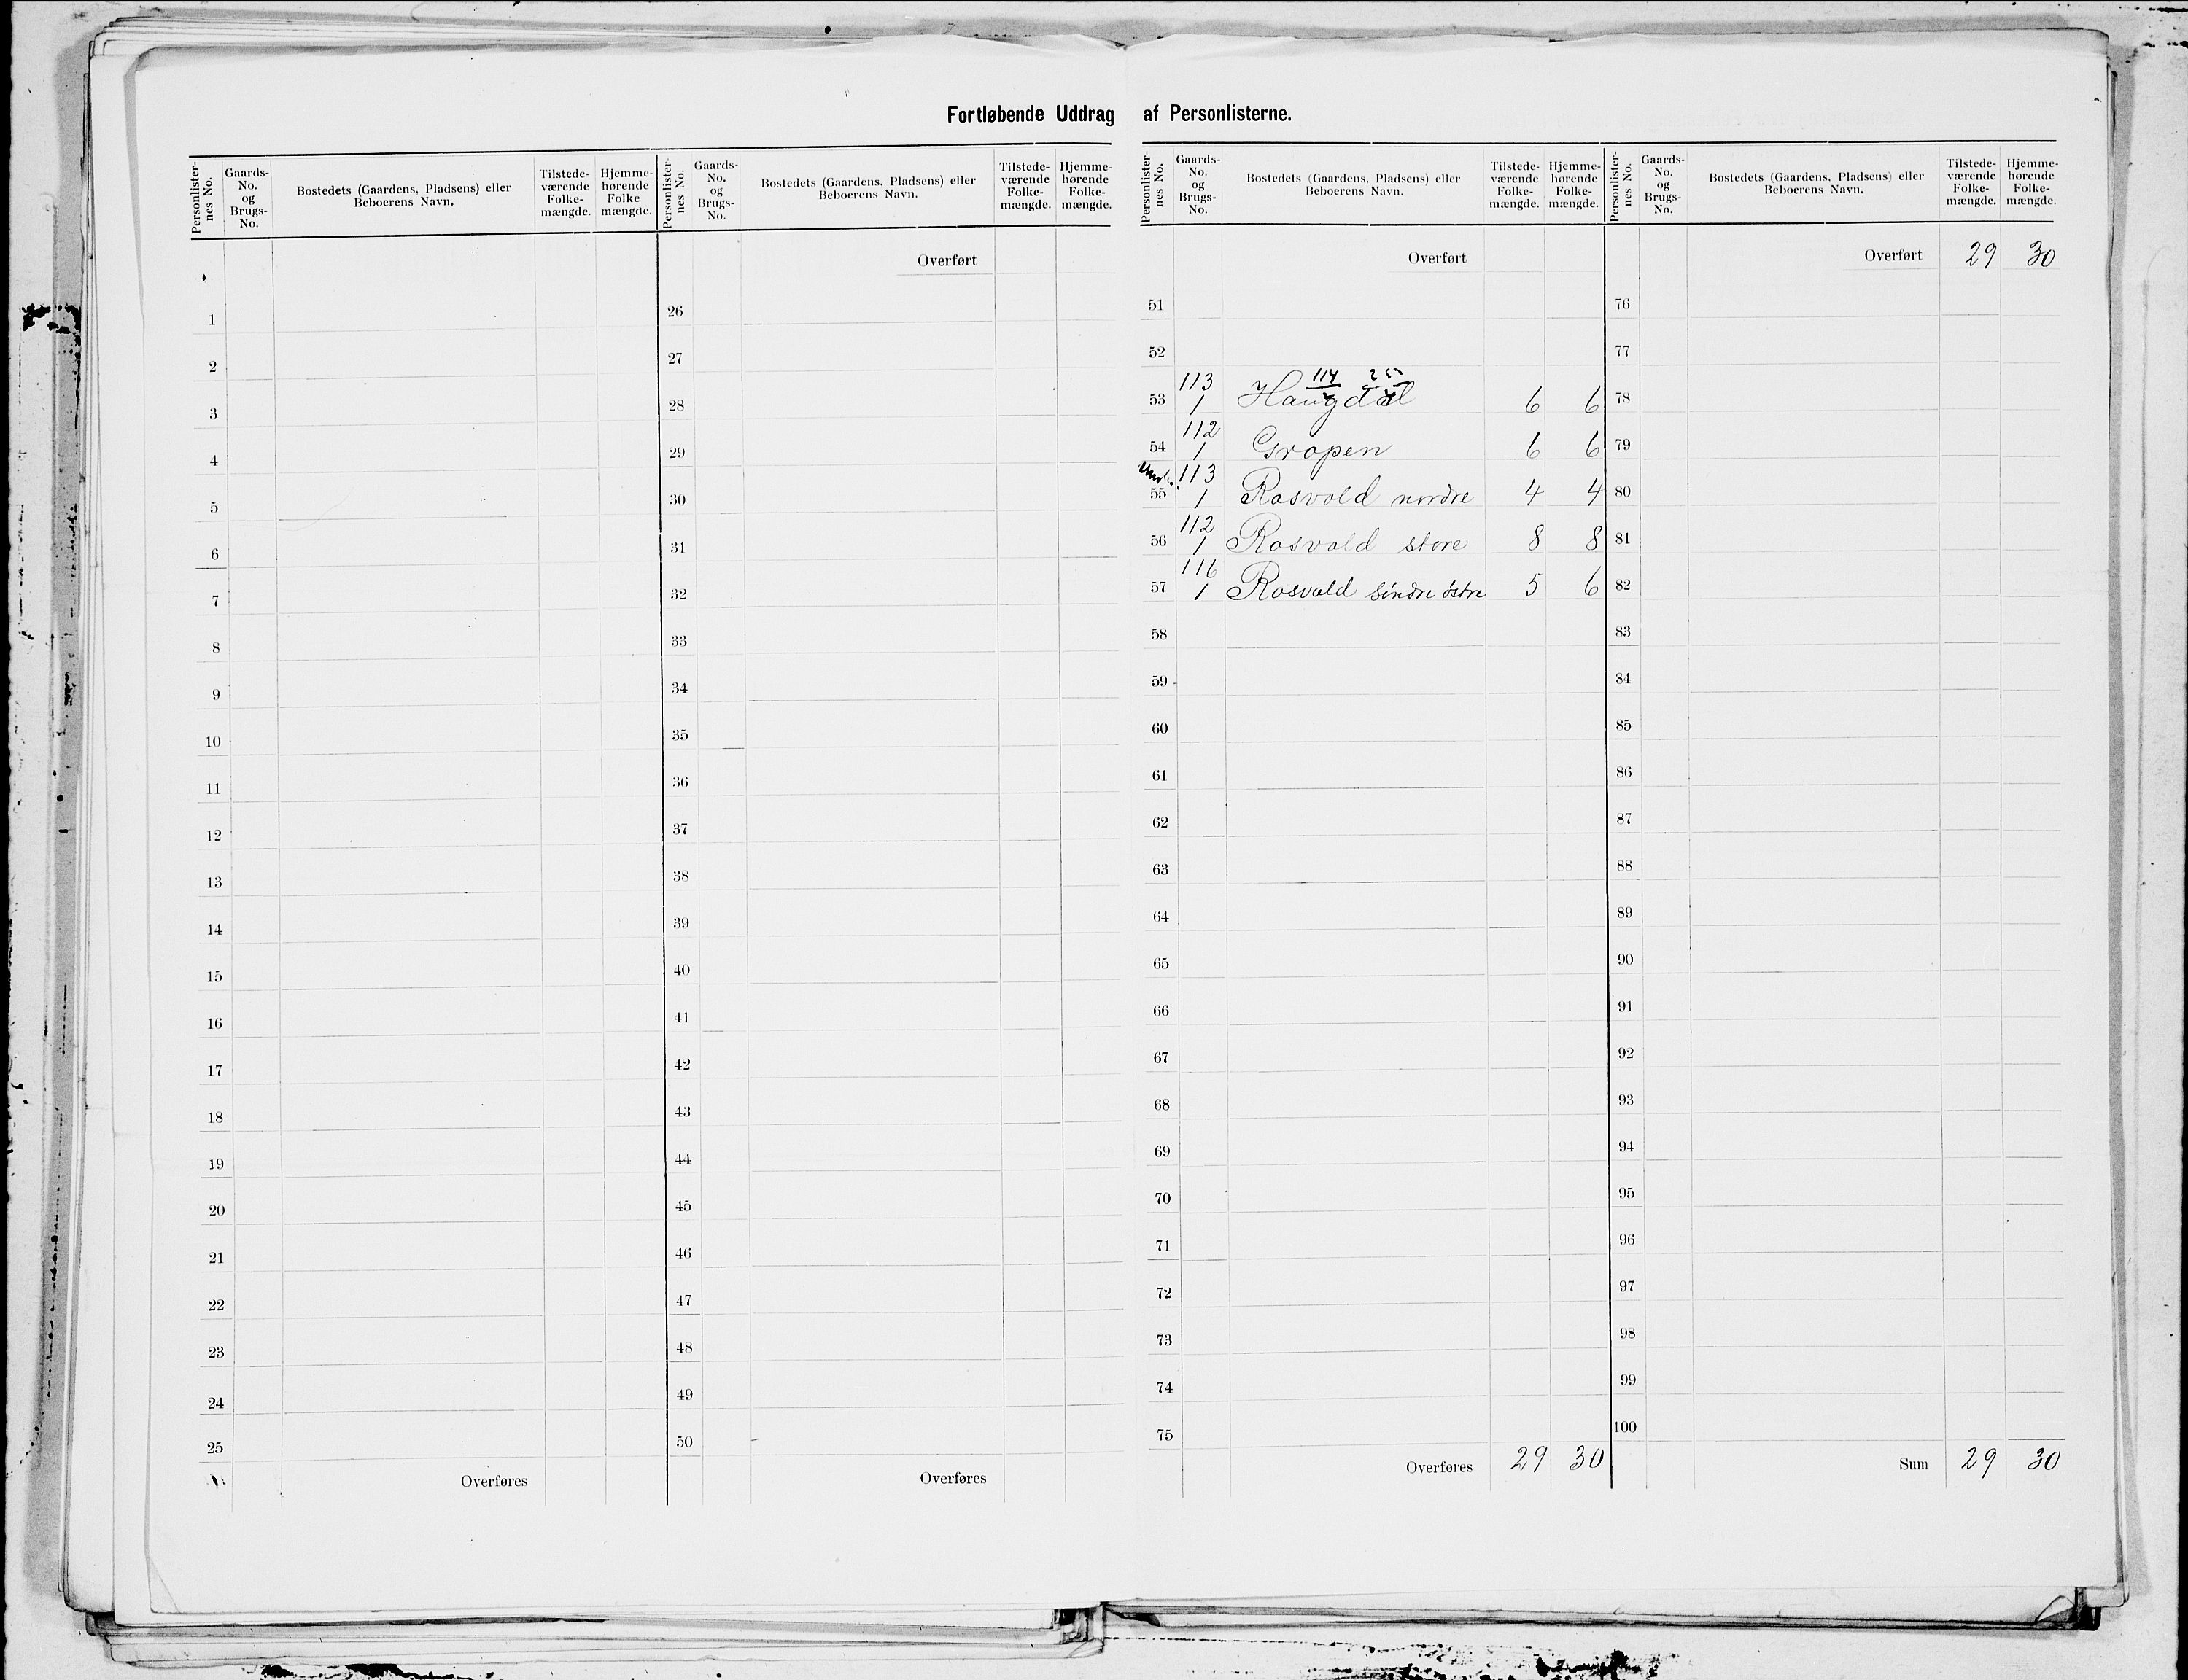 Fortløbende Uddrag af Personlisterne.
Personlister-nes No. Gaards-No. og Brugs-No. Bostedets (Gaardens, Pladsens) eller Beboerens Navn. Tilstede-værende Folke-mængde. Hjemme-hørende Folke mængde.
1
2
3
4
5
6
7
8
9
10
11
12
13
14
15
16
17
18
19
20
21
22
23
24
25
Overføres
Personlister-nes No. Gaards-No. og Brugs-No. Bostedets (Gaardens, Pladsens) eller Beboerens Navn. Tilstede-værende Folke-mængde. Hjemme-hørende Folke-mængde.
Overført
26
27
28
29
30
31
32
33
34
35
36
37
38
39
40
41
42
43
44
45
46
47
48
49
50
Overføres
Personlister-nes No. Gaards-No. og Brugs-No. Bostedets (Gaardens, Pladsens) eller Beboerens Navn. Tilstede-værende Folke-mængde. Hjemme-hørende Folke-mængde.
Overført
51
52
114
53 113 1 Haugdal 6 6
54 112 1 Gropen 6 6
55 113 1 Rosvold nordre 4 4
56 112 1 Rosvold store 8 8
57 116 1 Rosvold söndre östre 5 6
58
59
60
61
62
63
64
65
66
67
68
69
70
71
72
73
74
75
Overføres 29 30
Personlister-nes No. Gaards-No. og Brugs-No. Bostedets (Gaardens, Pladsens) eller Beboerens Navn. Tilstede-værende Folke-mængde. Hjemme-hørende Folke-mængde.
Overført 29 30
76
77
78
79
80
81
82
83
84
85
86
87
88
89
90
91
92
93
94
95
96
97
98
99
100
Sum 29 30